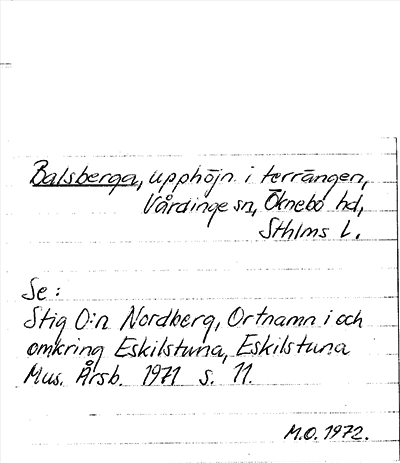 Balsberga, upphöjn. i terrängen,
Vårdinge sn, Öknebo hd,
Sthlms l.
Se:
Stig O:n Nordberg, Ortnamn i och
omkring Eskilstuna, Eskilstuna
Mus. Årsb. 1971 s. 11.
M.O. 1972.